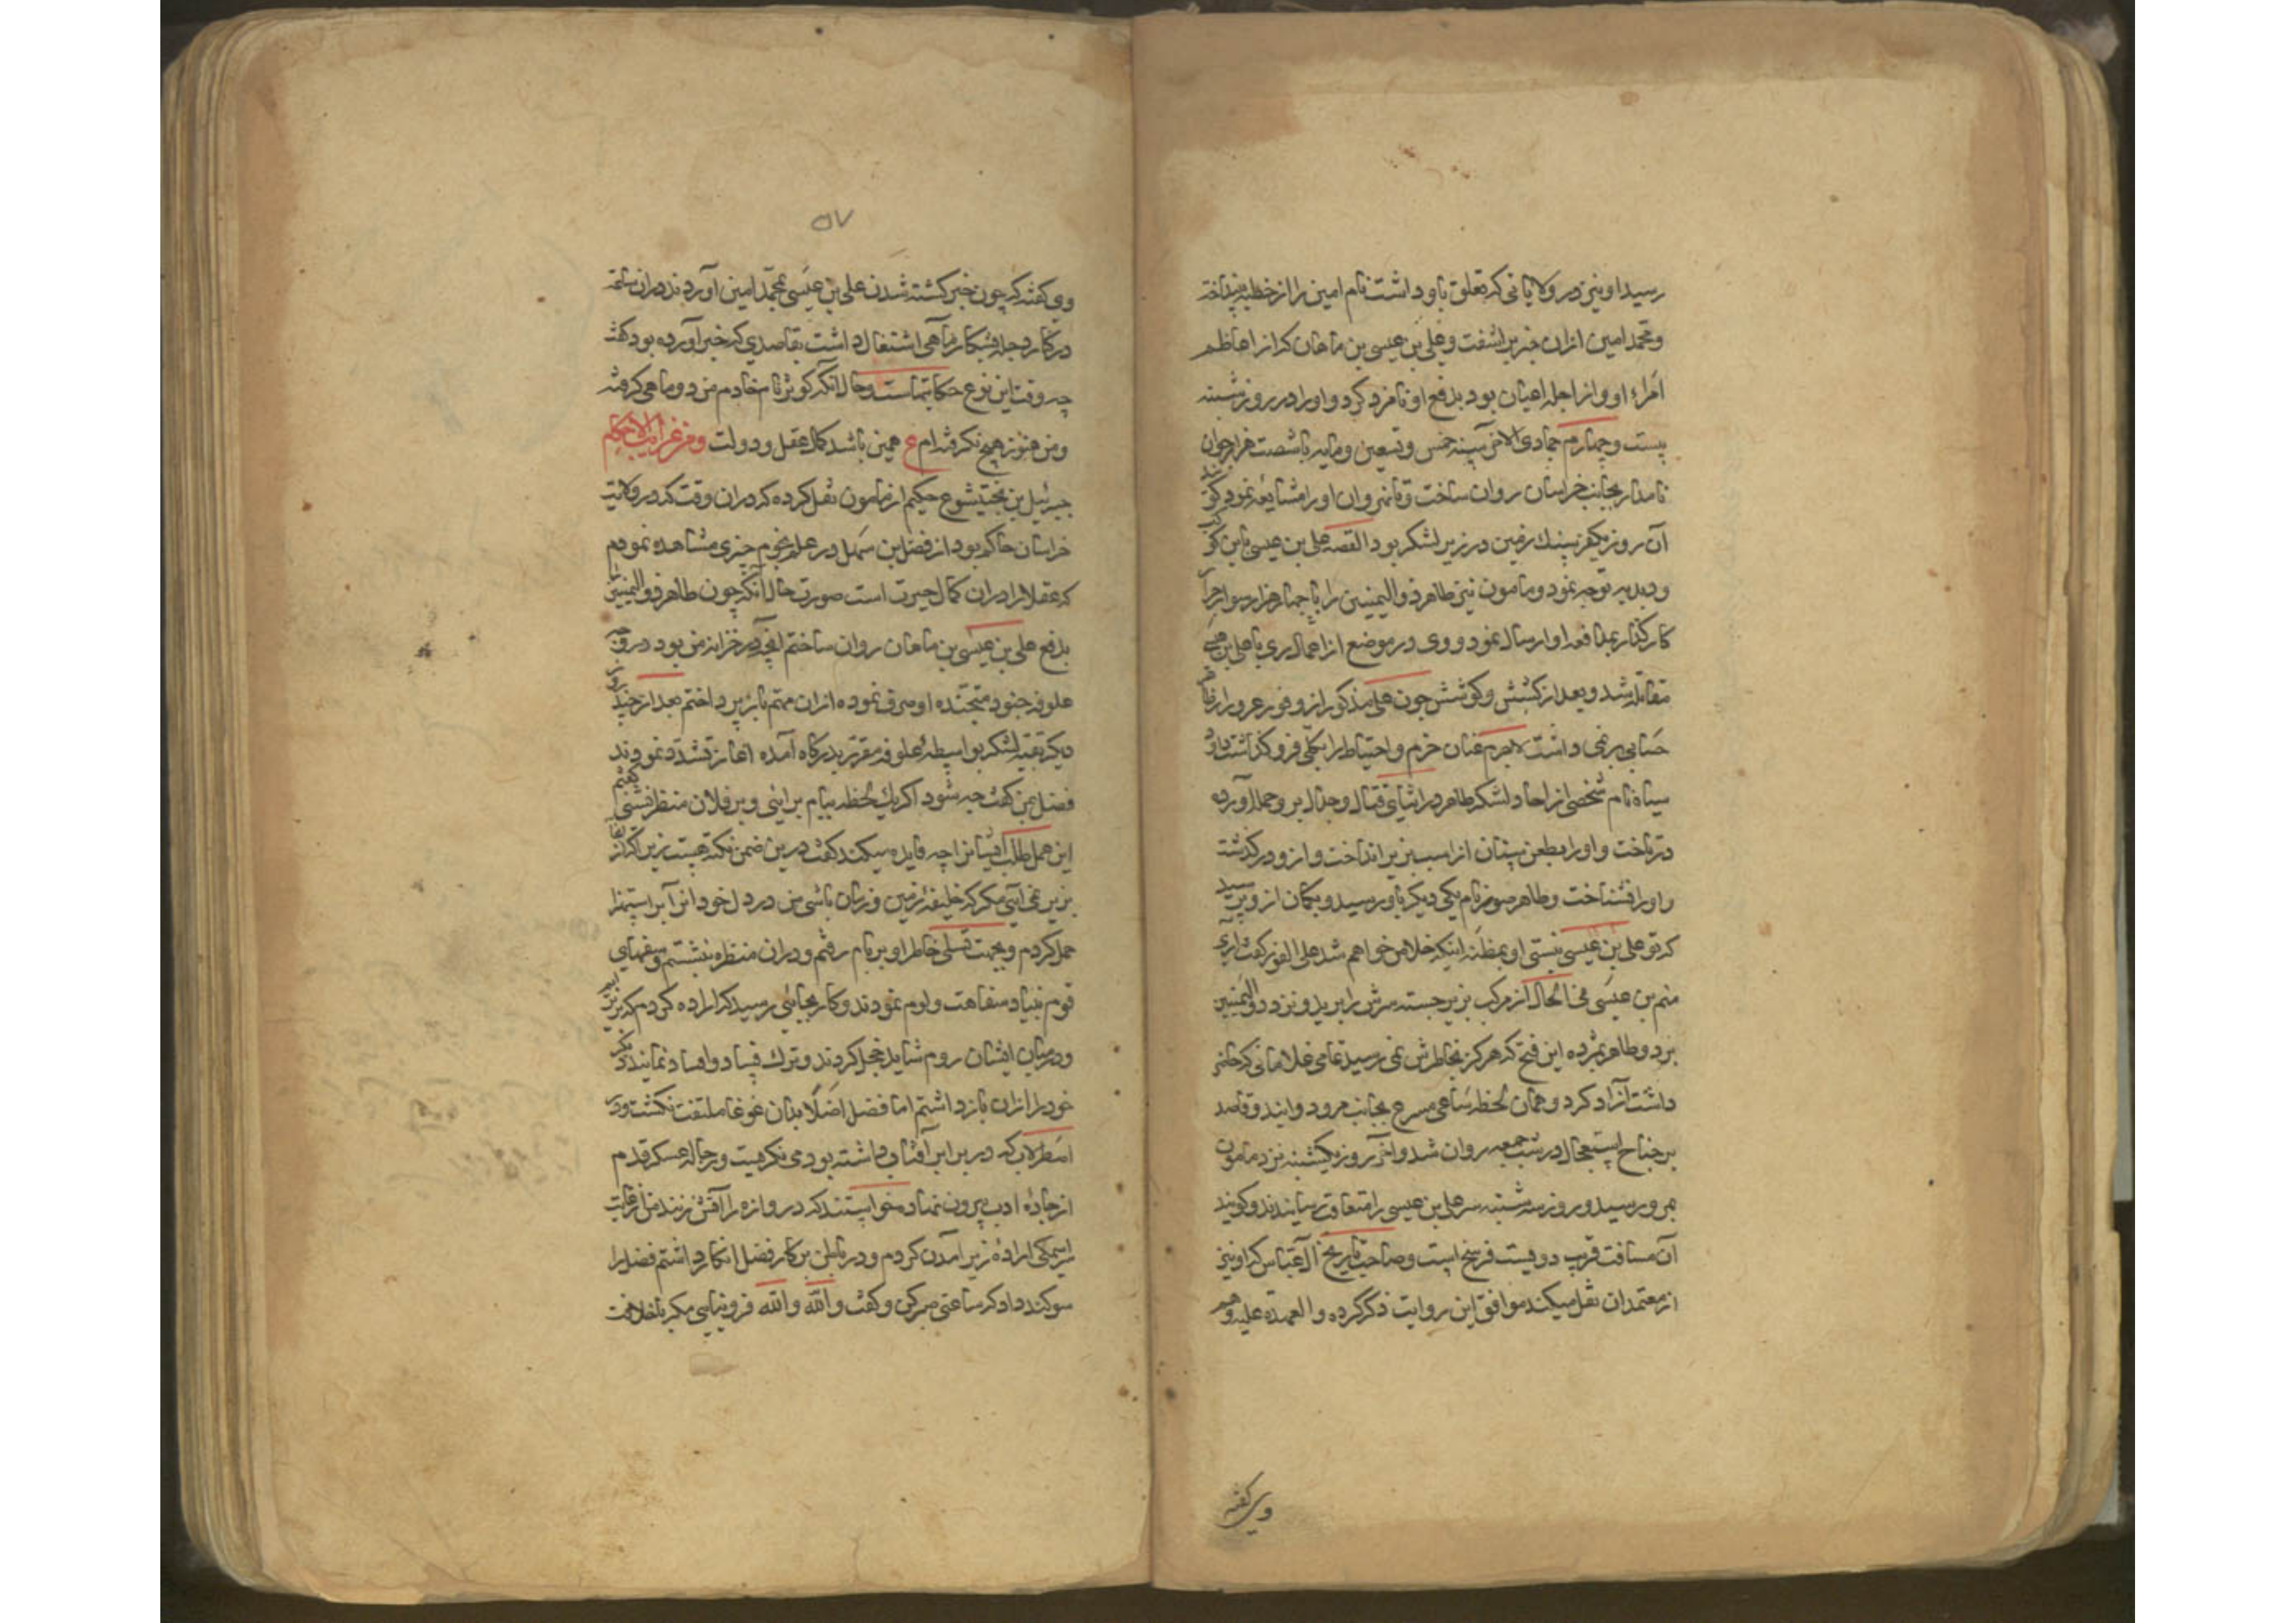 رسید او نیز در ولایاتی که تعلق باو داشت نام امین را از خطبه بینداخت
و محمد امین ازان خبر برآشفت و علی بن عیسی بن ماهان که از اعاظم
امراء او و از اجله اعیان بود بدفع او نامزد کرد و او را در روز شنبه
بیست و چهارم جمادی الاخر سنه خمس و تسعین و مایه با شصت هزار جوان
نامدار بجانب خراسان روان ساخت و تا نهروان او را مشایعه نمود گویند
آن روز یکفرسنك زمین در زیر لشکر بود القصه علی بن عیسی باین
و دبدبه توجه نمود و مامون نیز طاهر ذو الیمینین را با چهار هزار سوار
کارگذار بمدافعه او ارسال نمود و وی در موضع از اعمال ری با علی بن عیسی
مقابل شد و بعد از کشش و کوشش چون علی مذکور از وفور غرور از
حسابی بر نمی داشت لاجرم عنان حزم و احتیاط را بکلی فرو گذاشت داود
سیاه نام شخصی از احاد لشکر طاهر در اثنای قتال و جدال برو حمله آورده
در تاخت و او را بطعن سنان از اسب بزیر انداخت و ازو در گذشت
و او را نشناخت و طاهر نام یکی دیگر باو رسید و بگمان ازو پرسید
که تو علی بن عیسی نیستی او بمظنه اینکه خلاص خواهم شد علی الفور گفت آری
منم بن عیسی فی الحال از مرکب بزیر جسته سرش را برید و نزد ذو الیمینین
برد و طاهر بمژده این فتح که هرگز بخاطرش نمی رسید تمامی غلامانی که حاضر
داشت آزاد کرد و همان لحظه ساعی مسرع بجانب مرو دوانید و قاصد
بر جناح استعجال در شب جمعه روان شد و آخر روز یکشنبه نزد مامون
بمرو رسید و روز سه شنبه سر علی بن عیسی را متعاقب رسانیدند و گویند
آن مسافت قرب دویست فرسخ است و صاحب تاریخ آل عباس که او نیز
از معتمدان نقل میکند موافق این روایت ذکر کرده و العهدة علیه و هم
وی گفته
۵۷
وی گفته که چون خبر کشته شدن علی بن عیسی بمحمد امین آوردند دران ساعت
در کنار دجله بشکار ماهی اشتغال داشت بقاصدی که خبر آورده بود گفت
چه وقت این نوع حکایتهاست و حال آنکه کوثر نام خادم من دو ماهی گرفته
و من هنوز هیچ نگرفته ام ع همین باشد کمال عقل و دولت و من غرایب الاحکام
جبرئیل بن بختیشوع حکیم از مامون نقل کرده که دران وقت که در ولایت
خراسان حاکم بود از فضل بن سهل در علم نجوم چیزی مشاهده نمودم
که عقلا را دران کمال حیرت است صورت حال آنکه چون طاهر ذو الیمینین را
بدفع علی بن عیسی بن ماهان روان ساختم آنچه در خزانه من بود در وجه
علوفه جنود متجنده او صرف نموده ازان مهم باز پرداختم بعد از چند روز
دیگر بقیه لشکر بواسطه علوفه مقرر بدرگاه آمده آغاز تشدد نمودند
فضل بمن گفت چه شود اگر یك لحظه ببام برآئی و بر فلان منظر نشینی گفتم
این عمل طلب ایشانرا چه فایده میکند گفت درین ضمن نکته هست زیرا که از آنجا
بزیر نمی آئی مگر که خلیفه زمین و زمان باشی من در دل خود انرا بر استهزا
حمل کردم و بجهت تسلی خاطر او بر بام رفتم و دران منظره بنشستم و سفهای
قوم بنیاد سفاهت و لوم نمودند و کار بجائی رسید که اراده کردم که بزیر
و درمیان ایشان روم شاید خجل کردند و ترك فساد و افساد نمایند دیگر
خود را ازان باز داشتم اما فضل اصلاً بدان غوغا ملتفت نگشت و در
اسطرلاب که در برابر آفتاب داشته بود می نگریست و رجاله عسکر قدم
از جاده ادب بیرون نهاد میخواستند که دروازه را آتش زنند من از غایت
سراسیمگی اراده زیر آمدن کردم و در باطن بر کار فضل انکار داشتم فضل مرا
سوگند داد که ساعتی صبر کن و گفت والله والله فرو نیایی مگر با خلافت